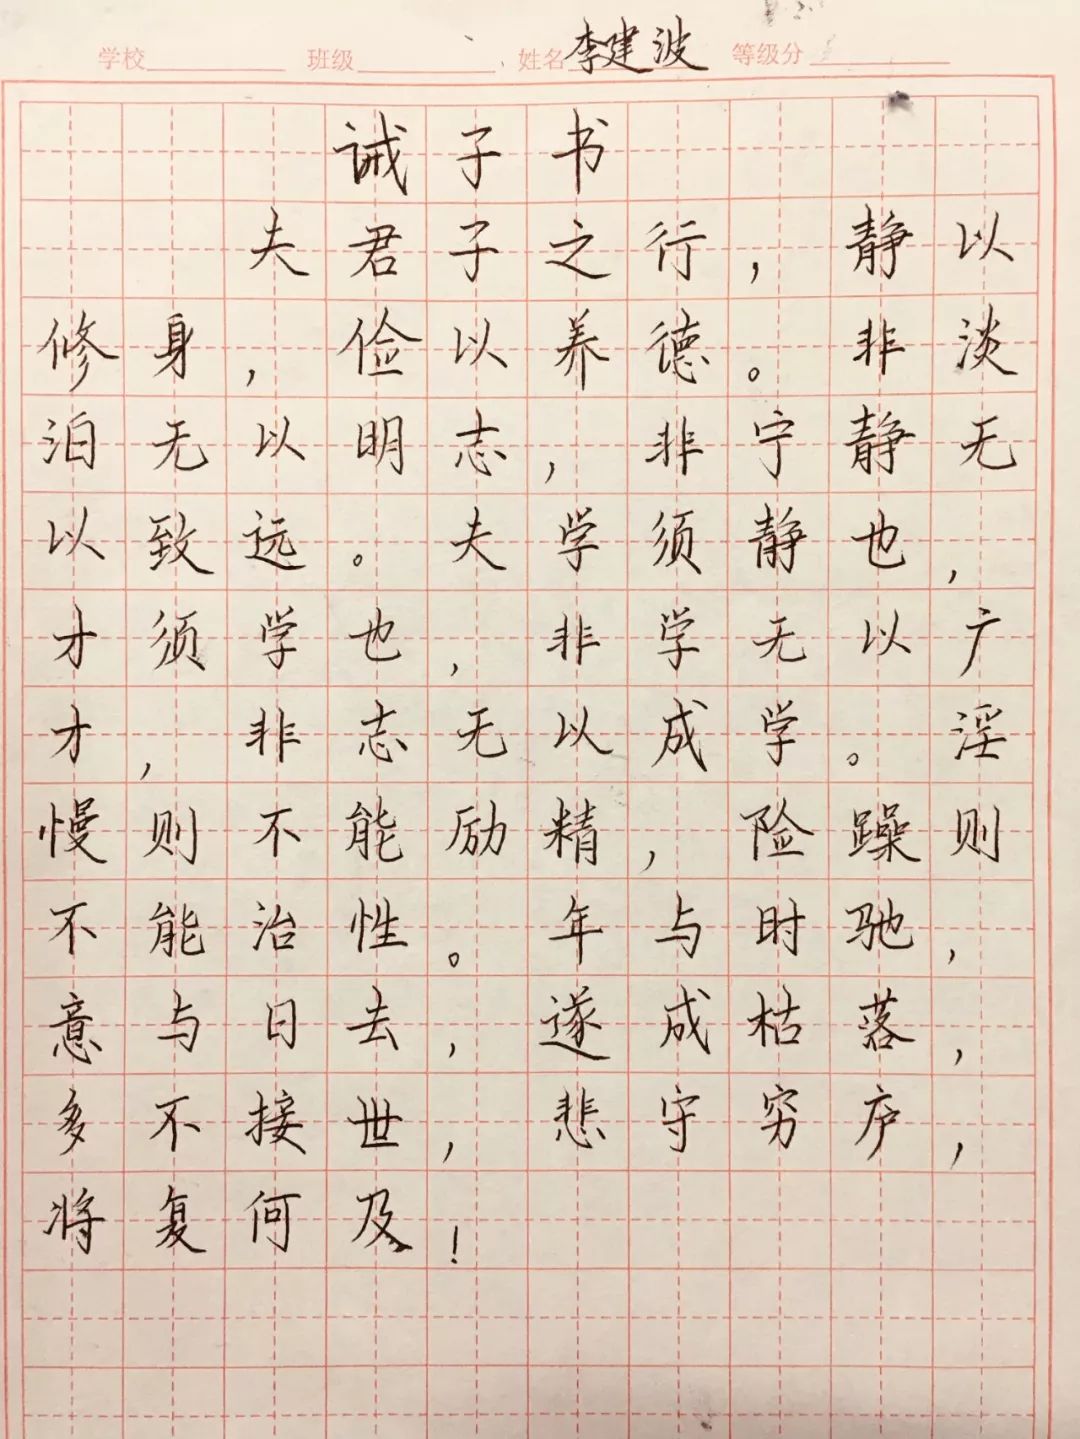 学校 班级 姓名 李建波 等级分
诫子书
夫君子之行，静以
修身，俭以养德。非淡
泊无以明志，非宁静无
以致远。夫学须静也，
才须学也，非学无以广
才，非志无以成学。淫
慢则不能励精，险躁则
不能治性。年与时驰，
意与日去，遂成枯落，
多不接世，悲守穷庐，
将复何及！